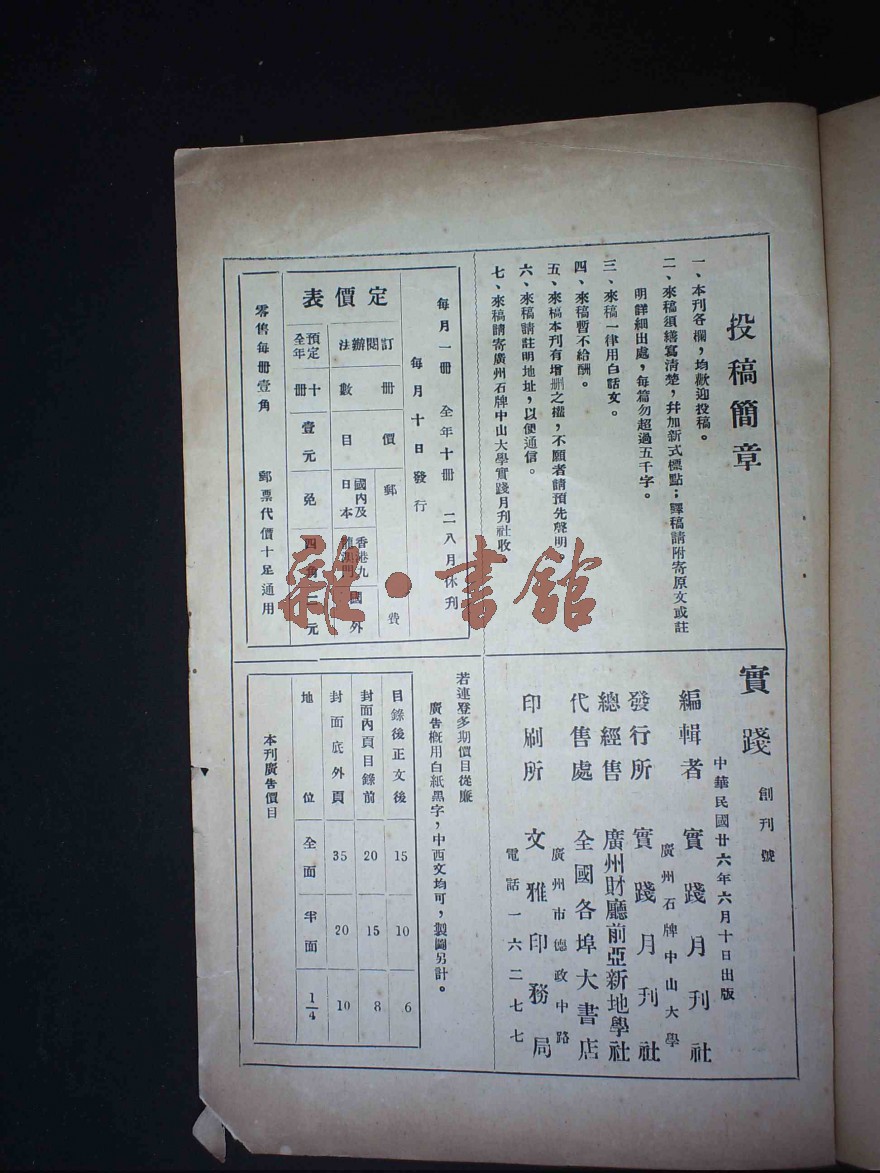 投稿簡章
一、本刊各欄，均歡迎投稿。
二、來稿須繕寫清楚，幷加新式標點；譯稿請附寄原文或註
明詳細出處，每篇勿超過五千字。
三、來稿一律用白話文。
四、來稿暫不給酬。
五、來稿本刊有增删之權，不願者請預先聲明。
六、來稿請註明地址，以便通信。
七、來稿請寄廣州石牌中山大學實踐月刊社收。
每月一冊 全年十冊 二八月休刊
每月十日發行
定價表
訂閱辦法 冊數 價目 郵費
國內及日本 香港九龍澳門 國外
預定全年 十冊 壹元 免 四角 二元
零售每冊壹角 郵票代價十足通用
實踐 創刊號
中華民國廿六年六月十日出版
編輯者 實踐月刊社
廣州石牌中山大學
發行所 實踐月刊社
總經售 廣州財廳前亞新地學社
代售處 全國各埠大書店
廣州市德政中路
印刷所 文雅印務局
電話一六二七七
若連登多期價目從廉
廣告概用白紙黑字，中西文均可，製圖另計。
目錄後正文後 15 10 6
封面內頁目錄前 20 15 8
封面底外頁 35 20 10
地位 全面 半面 1/4
本刊廣告價目
雜·書館